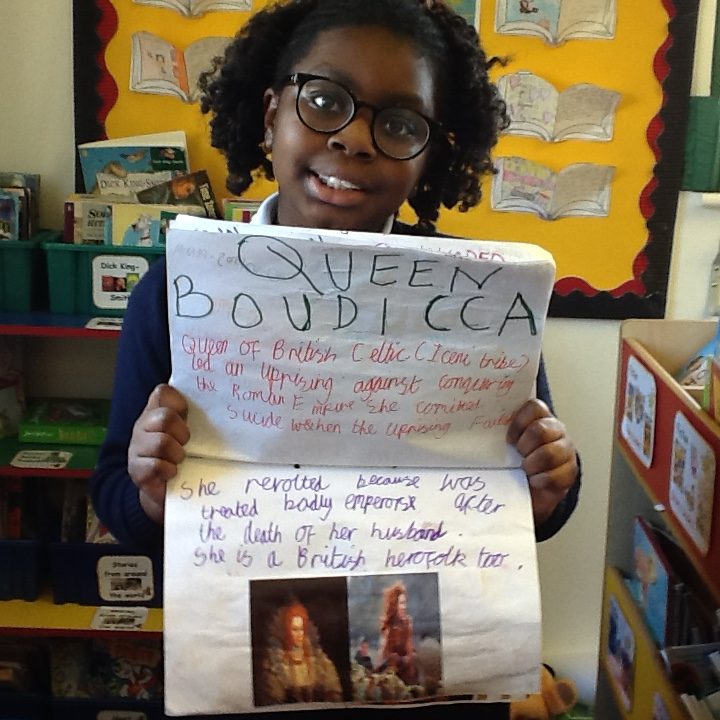 DICK KING-SMITH
Dick King-
Smith
QUEEN
BOUDICCA
Queen of British Celtic (Iceni tribe)
led an uprising against conquering
the Roman Empire She comitted
Suicide when the uprising Failed
she revolted because was
treated badly emperorse after
the death of her husband.
she is a British herofolk too.
Stories
from around
the world